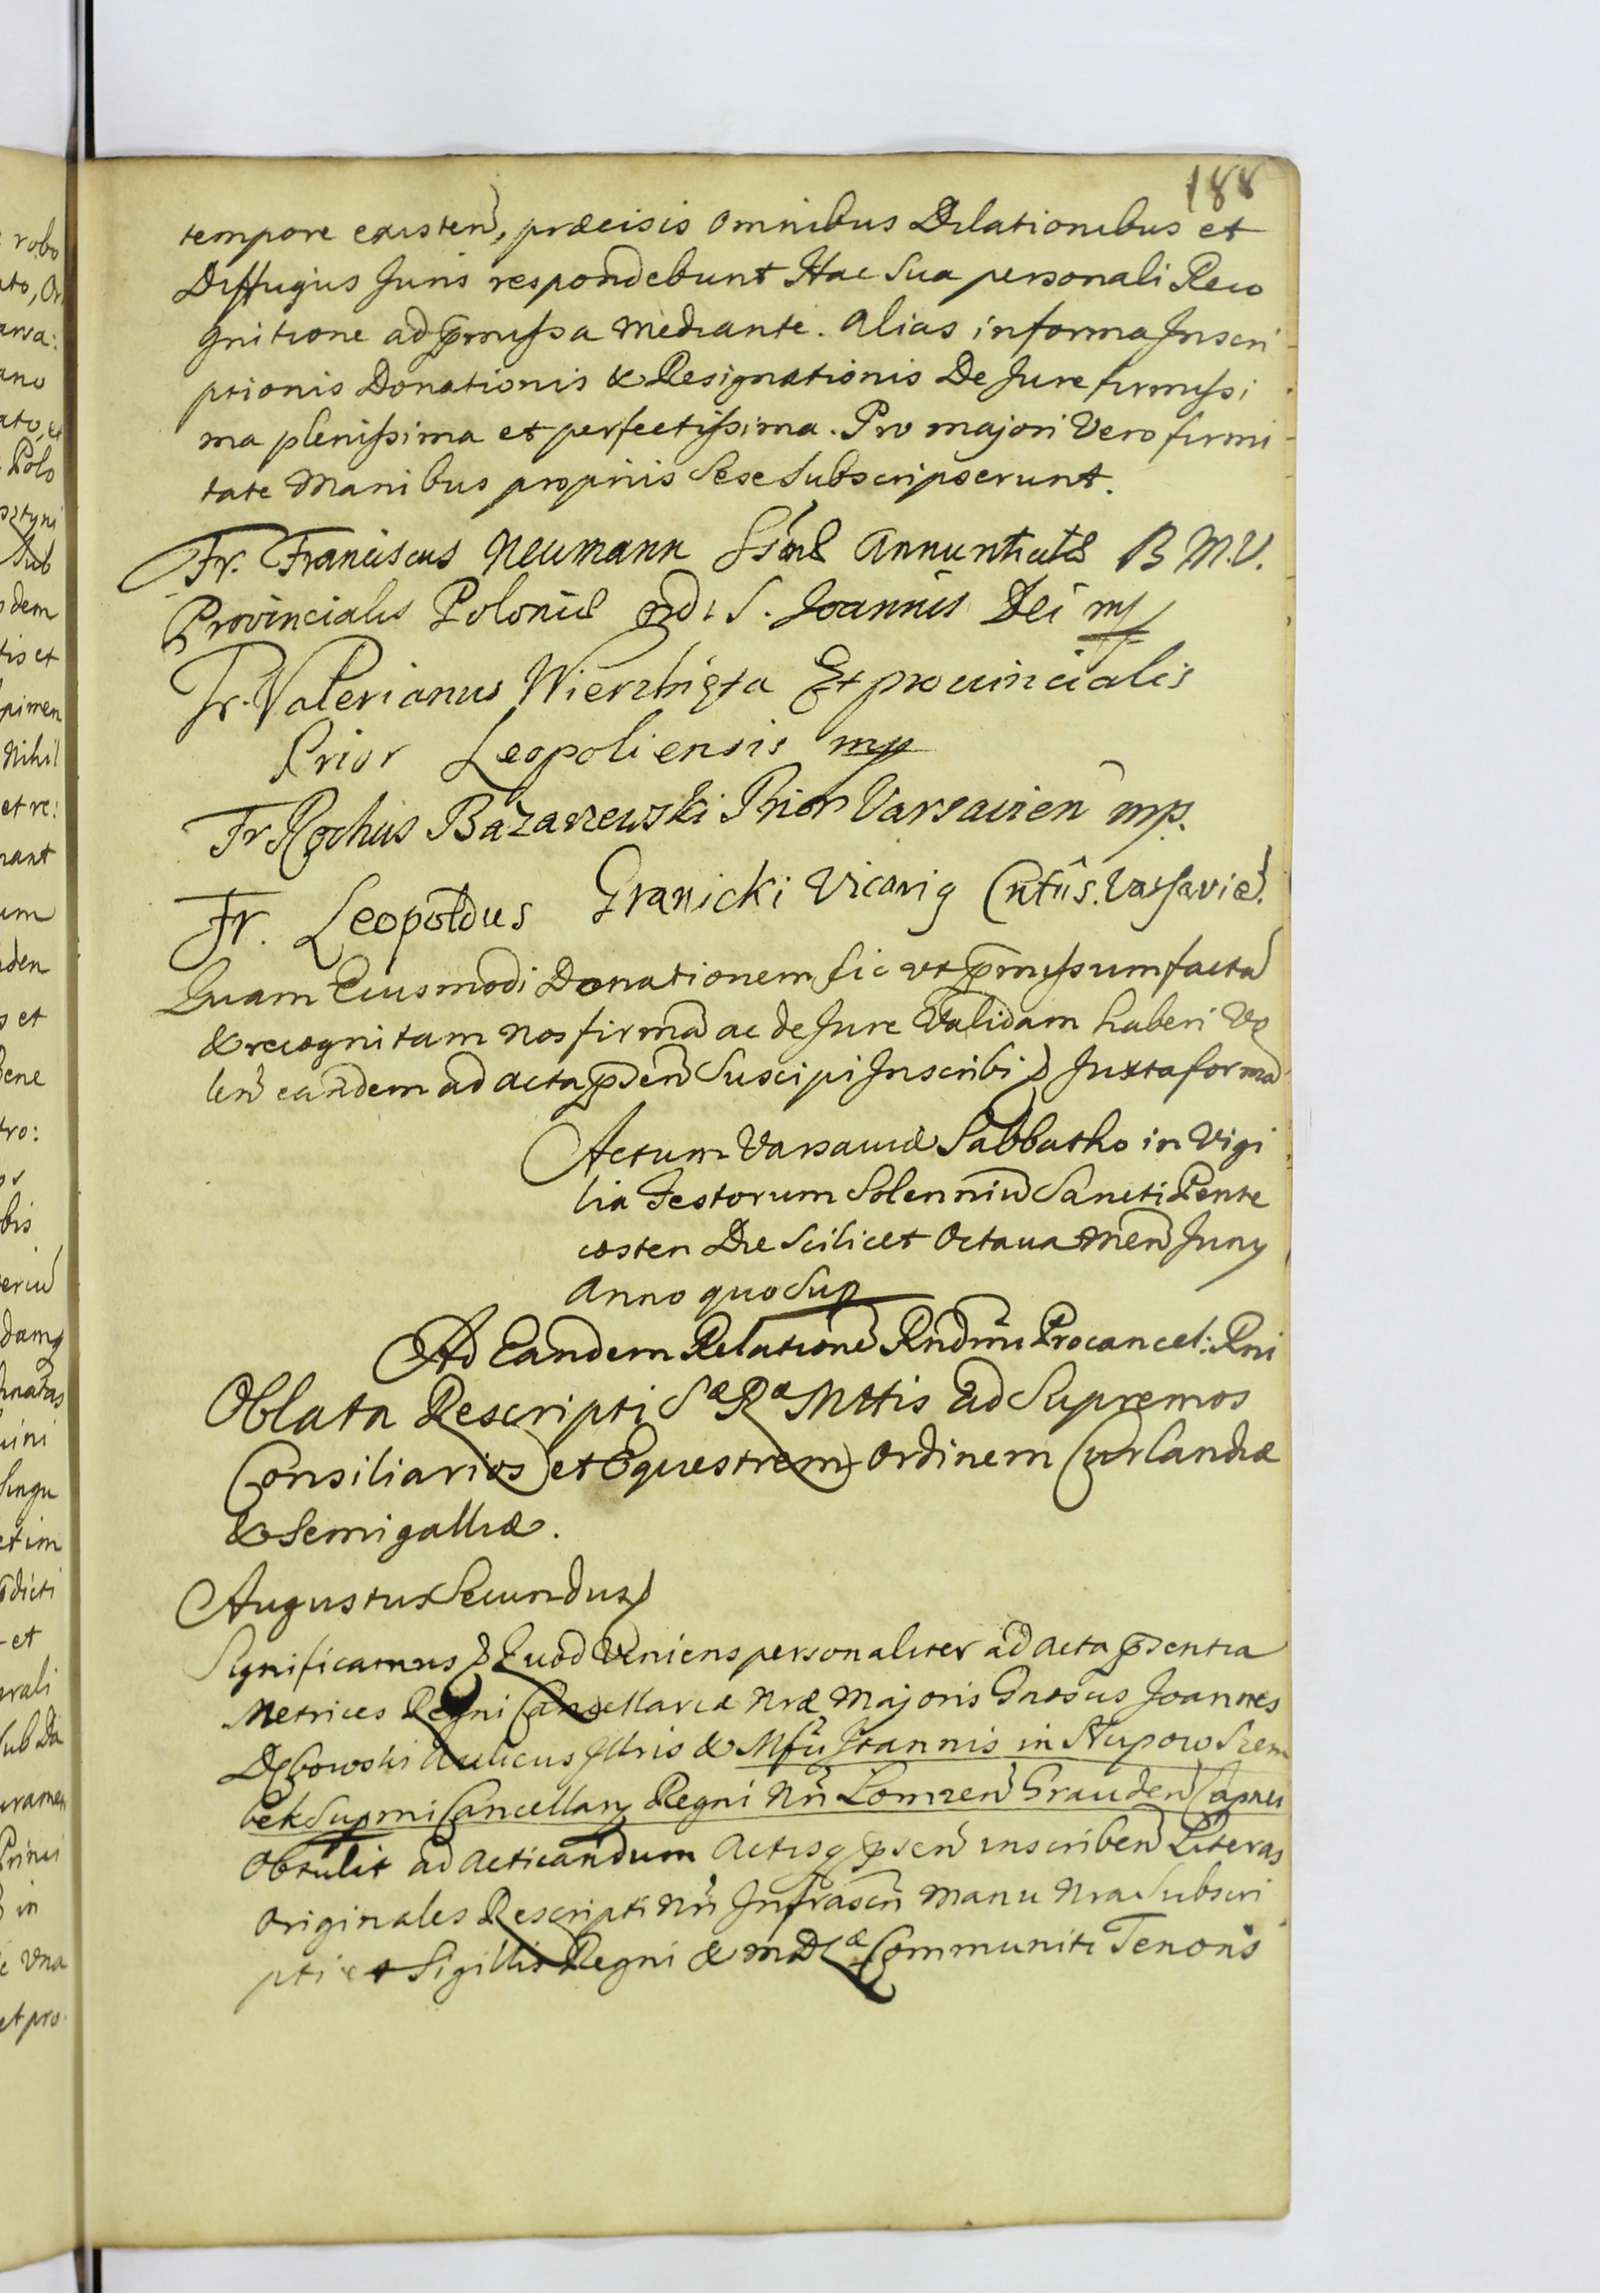 188
tempore existen, præcisis omnibus Dilationibus et
Diffugiis Juris respondebunt Hac Sua personali Reco
gnitione ad pmissa mediante. Alias in forma Inscri
ptionis Donationis & Resignationis De Jure firmissi
ma plenissima et perfectissima. Pro majori Vero firmi
tate Manibus propriis Sese Subscripserunt.
Fr. Franciscus Neumann B M.V.
Provincialis Poloniæ ord: S. Joannis Dei mp
Fr. Valerianus Wierzbięta Exprouincialis
Prior Leopoliensis mp
Fr Rochus Bazarzewski Prior Varsavien mp.
Fr. Leopoldus Granicki Vicarig Cntûs. Varsavie.
Quam Eiusmodi Donationem sic ut pmissum facta
& recognitam nos firma ac de Jure Validam haberi Vo
len eandem ad acta psen Suscipi Inscribi Juxta forma
Actum Varsauiæ Sabbatho in Vigi
lia Festorum Solenniu Sancti Pente
costen Die Scilicet Octaua Men Juny
Anno quo Sup
Ad Eandem Relatione Rndmi Procancel: Rni
Oblata Rescripti Sæ Ræ Mttis ad Supremos
Consiliarios et Equestrem Ordinem Curlandiæ
& Semigalliæ.
Augustus Secundus
Significamus Quod Veniens personaliter ad Acta psentia
Metrices Regni Cancellariæ Nræ Majoris Gnosus Joannes
Dębowski Aulicus Illris & Mfci Joannis in Słupow Szem
bek Supmi Cancellary Regni Nri Lomzen Grauden Capnei
Obtulit ad Acticandum Actisq psen inscriben Literas
Originales Rescripti Nri Infrascri manu Nra Subscri
pti et Sigillis Regni & MDLæ Communiti Tenoris